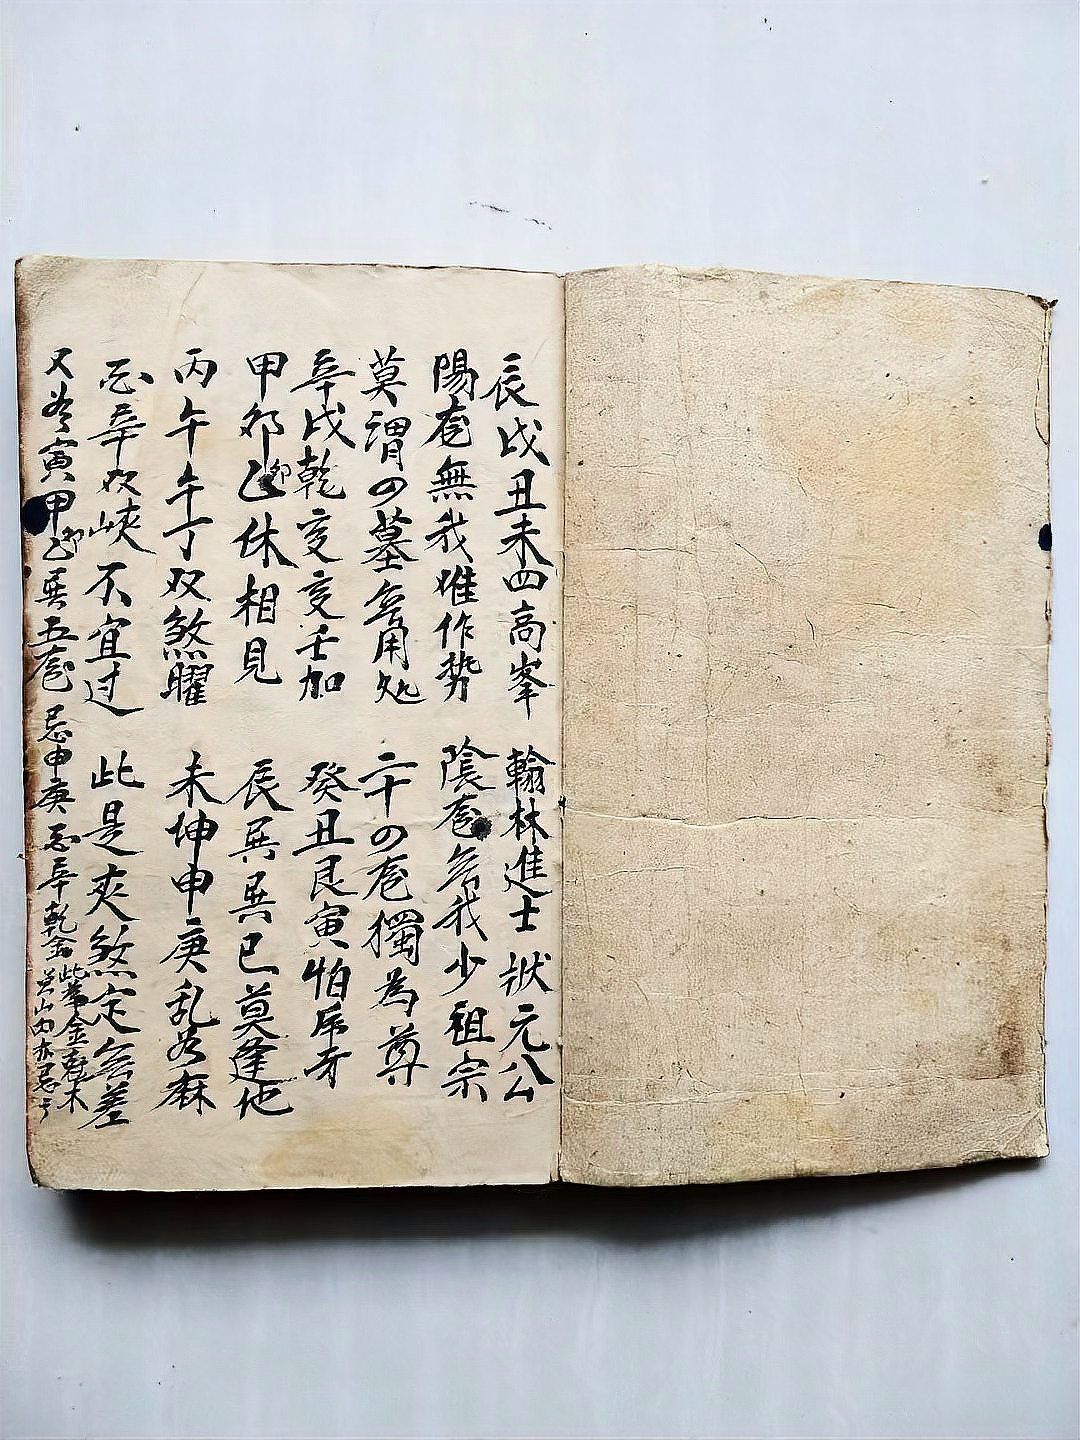 辰戌丑未四高峯　翰林進士狀元公
陽龙無我难作势　陰龙無我少祖宗
莫谓四墓無用处　二十四龙獨為尊
辛戌乾亥亥壬加　癸丑艮寅怕虎牙
甲卯乙卯休相見　辰巽巽巳莫逢他
丙午午丁双煞曜　未坤申庚乱如麻
酉辛双峽不宜过　此是夾煞定無差
又如寅甲卯乙巽五龙　忌申庚酉辛乾金
此等金尅木
兰山内亦忌之